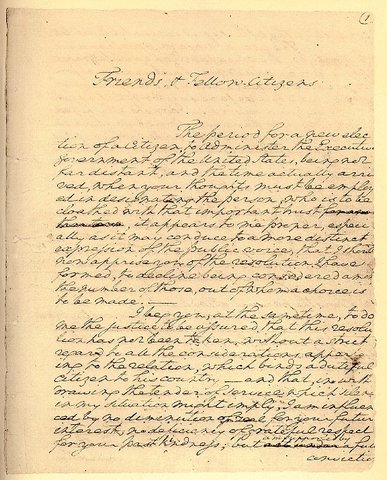 1
Friends, & Fellow-Citizens
The period for a new elec
tion of a Citizen, to administer the Executive
government of the United States, being not
far distant, and the time actually arri
ved, when your thoughts must be employ
ed in designating the person, who is to be
cloathed with that important trust
, it appears to me proper, especi
ally as it may conduce to a more distinct
expression of the public voice, that I should
now apprise you of the resolution I have
formed, to decline being considered among
the number of those, out of whom a choice is
to be made.
I beg you, at the same time, to do
me the justice to be assured, that this resolu
tion has not been taken, without a strict
regard to all the considerations appertain
ing to the relation, which binds a dutiful
citizen to his country — and that, in with
drawing the tender of service which silence
in my situation might imply, I am influen
ced by no diminution of zeal for your future
interest, no deficiency of grateful respect
for your past kindness; but am supported by a full
conviction